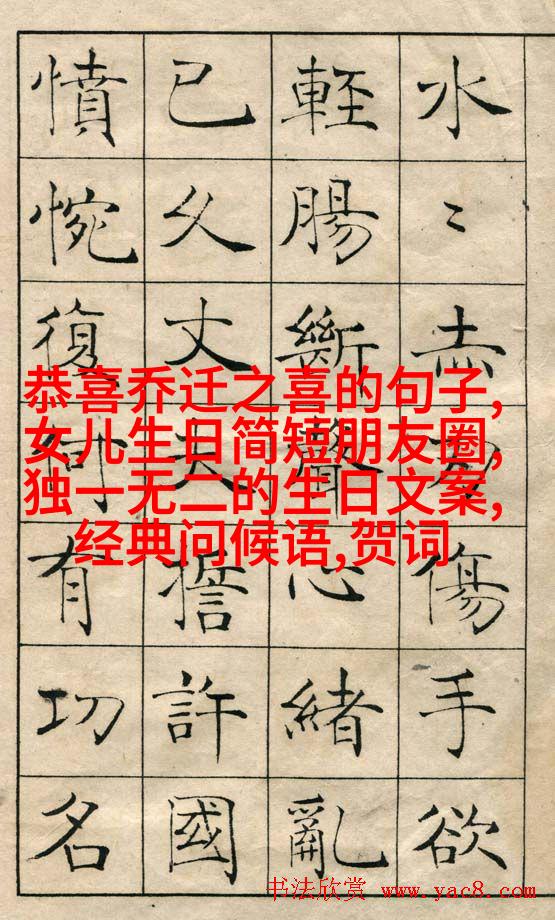 水〻赤刃傷手欲
輕腸斷聲心緒亂
已久丈夫誓許國
憤惋復何有功名
恭喜乔迁之喜的句子,
女儿生日简短朋友圈,
独一无二的生日文案,
经典问候语,贺词
书法欣赏 www.yac8.com